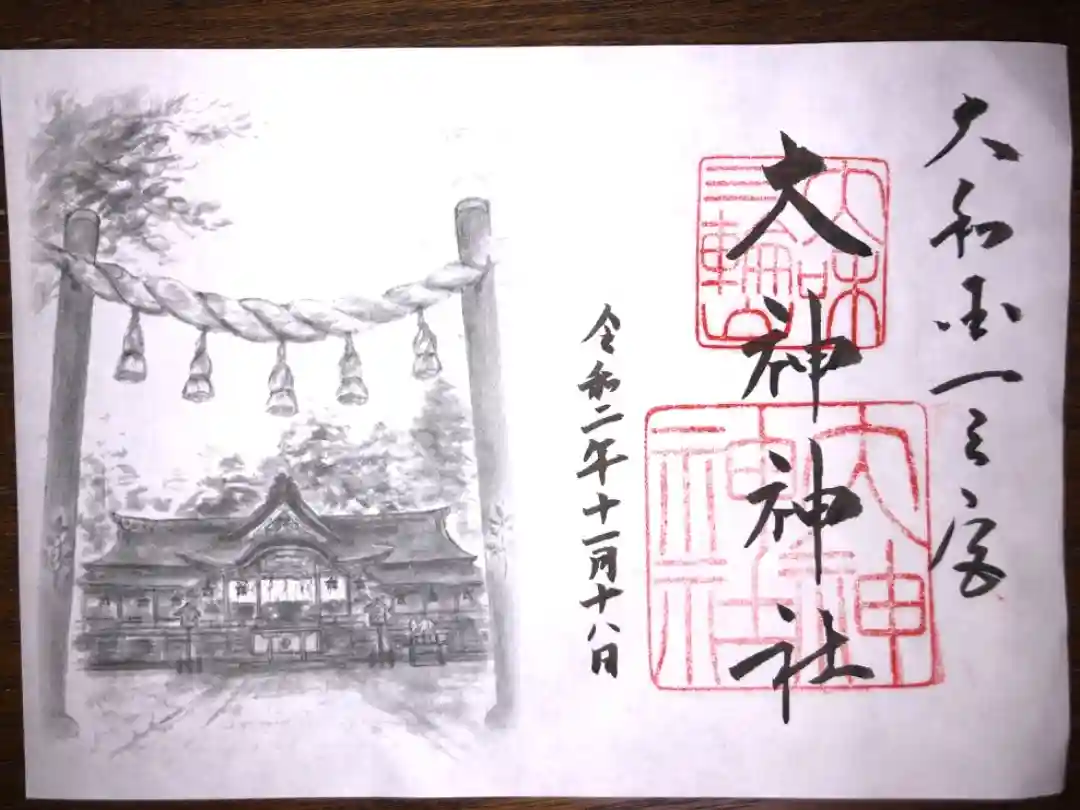 大和国一之宮
大神神社
大和
三輪山
大神
神社
令和二年十一月十八日